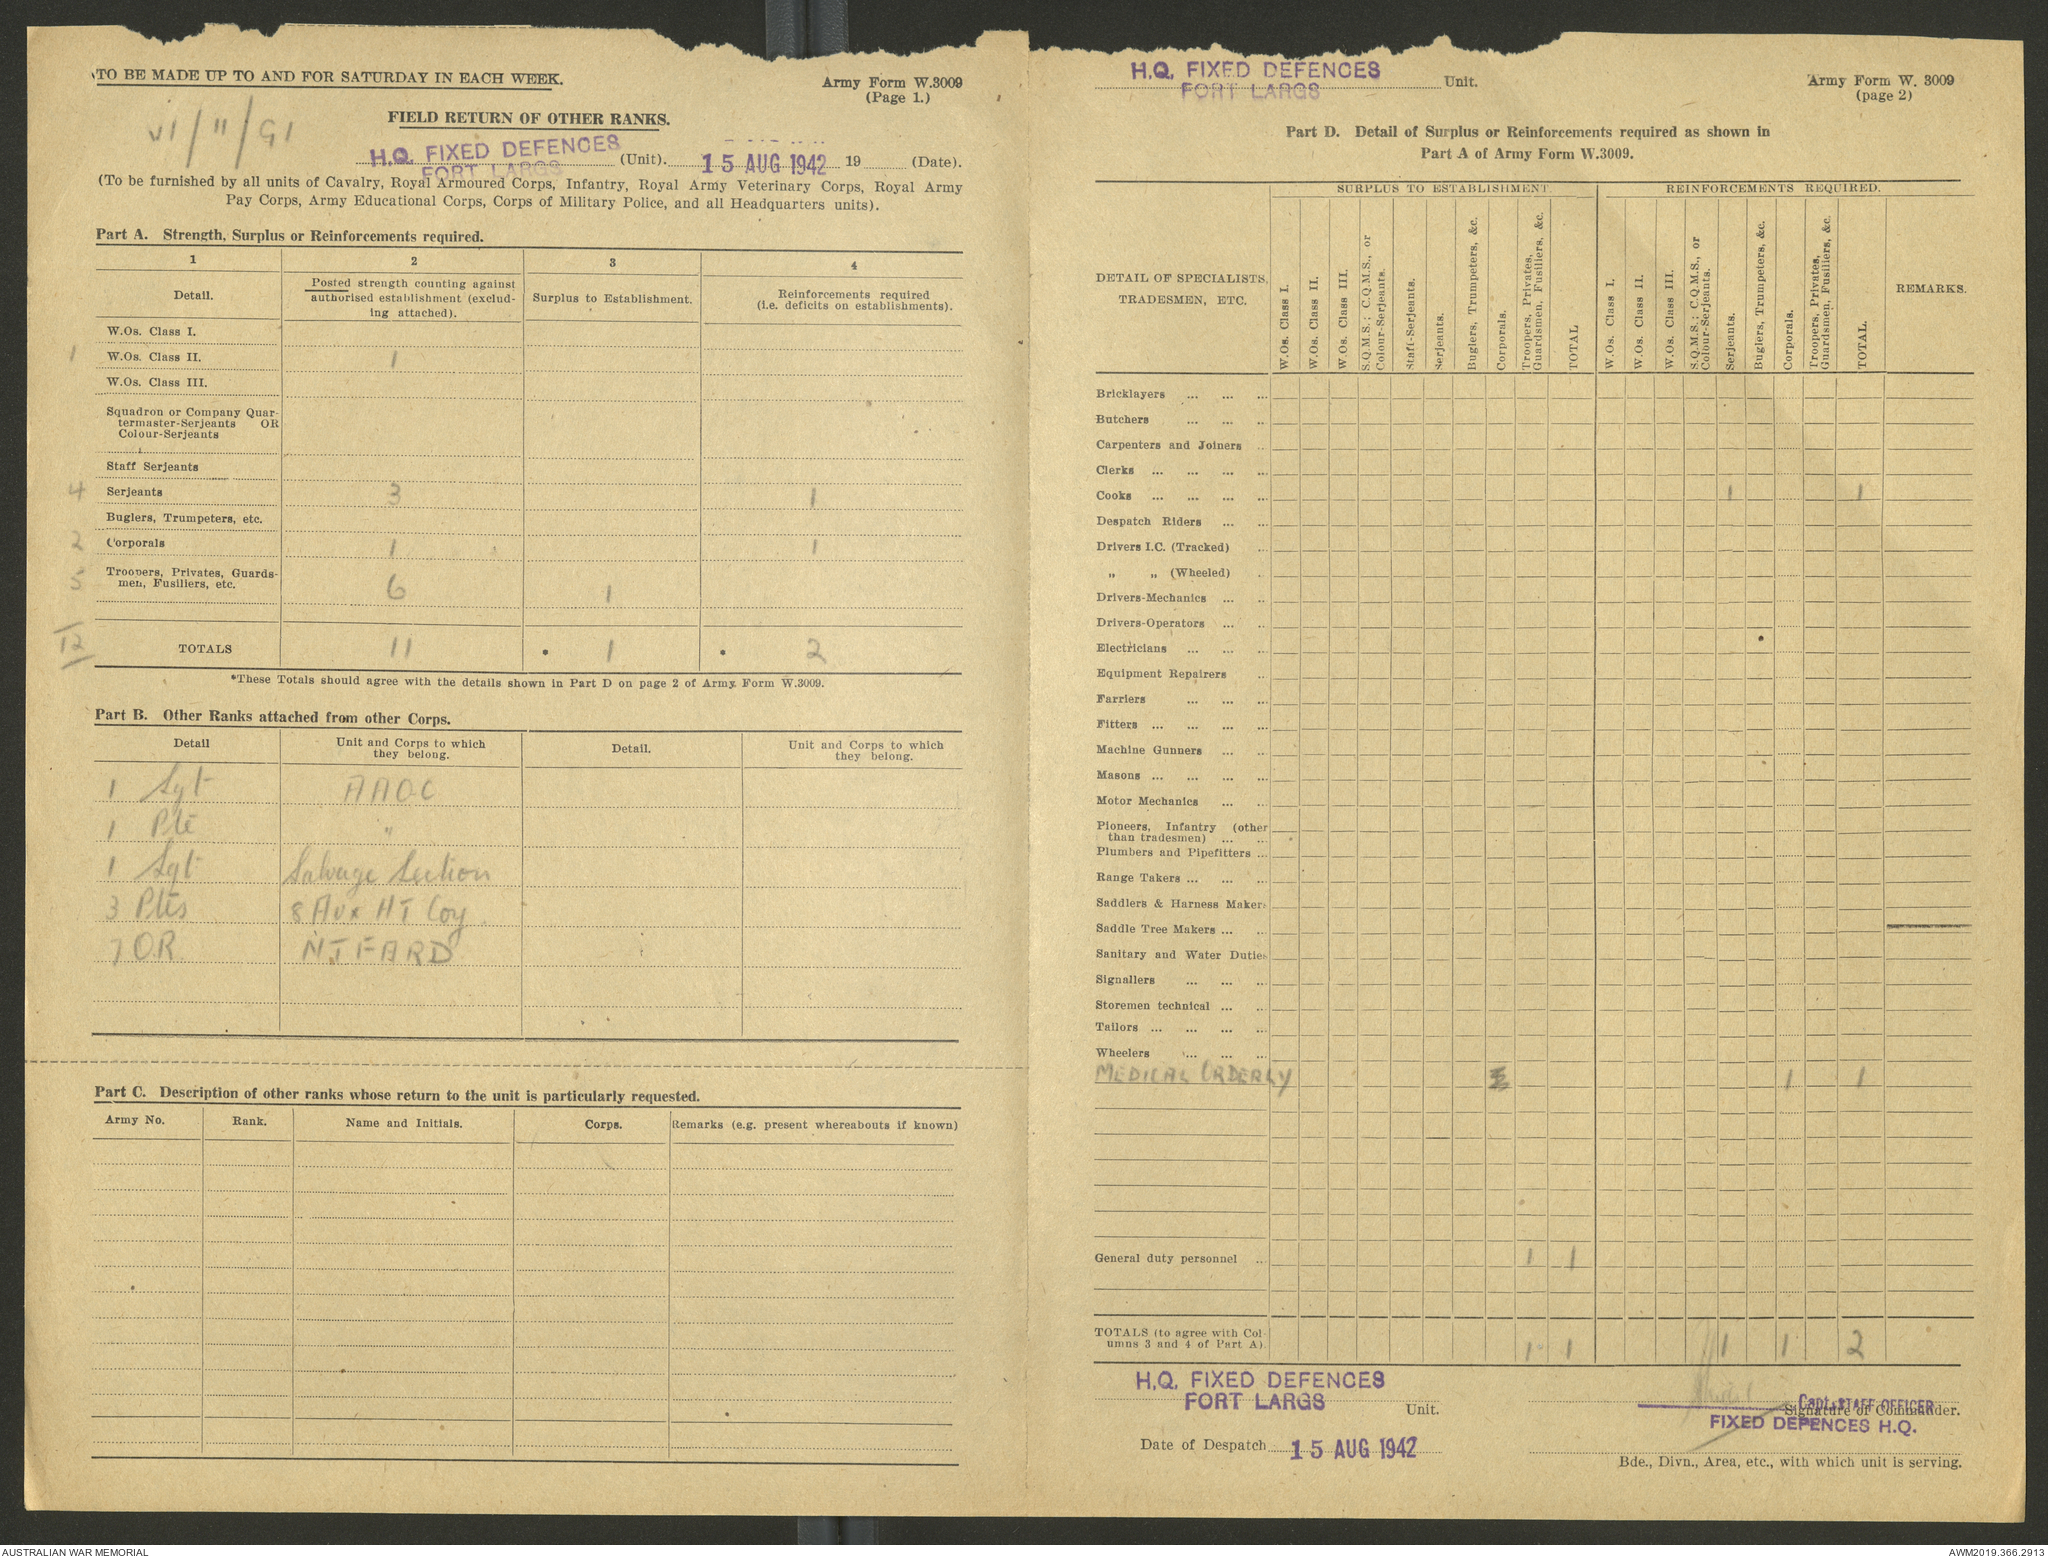 TO BE MADE UP TO AND FOR SATURDAY IN EACH WEEK.
Army Form W.3009
(Page 1.)
VI/11/G1
FIELD RETURN OF OTHER RANKS.
H.Q. FIXED DEFENCES
FORT LARGS
(Unit). 15 AUG 1942 19 (Date).
(To be furnished by all units of Cavalry, Royal Armoured Corps, Infantry, Royal Army Veterinary Corps, Royal Army
Pay Corps, Army Educational Corps, Corps of Military Police, and all Headquarters units).
Part A. Strength, Surplus or Reinforcements required.
1 2 3 4
Detail.
Posted strength counting against
authorised establishment (exclud-
ing attached).
Surplus to Establishment.
Reinforcements required
(i.e. deficits on establishments).
W.Os. Class I.
1 W.Os. Class II. 1
W.Os. Class III.
Squadron or Company Quar-
termaster-Serjeants OR
Colour-Serjeants
Staff Serjeants
4 Serjeants 3 1
Buglers, Trumpeters, etc.
2 Corporals 1 1
5 Troopers, Privates, Guards-
men, Fusiliers, etc. 6 1
12 TOTALS 11 * 1 * 2
*These Totals should agree with the details shown in Part D on page 2 of Army Form W.3009.
Part B. Other Ranks attached from other Corps.
Detail
Unit and Corps to which
they belong.
Detail.
Unit and Corps to which
they belong.
1 Sgt AAOC
1 Pte "
1 Sgt Salvage Section
3 Ptes 8 Aux HT Coy
7 O.R.
Part C. Description of other ranks whose return to the unit is particularly requested.
Army No. Rank. Name and Initials. Corps. Remarks (e.g. present whereabouts if known)
H.Q. FIXED DEFENCES
FORT LARGS
Unit.
Army Form W. 3009
(page 2)
Part D. Detail of Surplus or Reinforcements required as shown in
Part A of Army Form W.3009.
DETAIL OF SPECIALISTS,
TRADESMEN, ETC.
SURPLUS TO ESTABLISHMENT.
W.Os. Class I.
W.Os. Class II.
W.Os. Class III.
S.Q.M.S.; C.Q.M.S., or
Colour-Serjeants.
Staff-Serjeants.
Serjeants.
Buglers, Trumpeters, &c.
Corporals.
Troopers, Privates,
Guardsmen, Fusiliers, &c.
TOTAL
REINFORCEMENTS REQUIRED.
W.Os. Class I.
W.Os. Class II.
W.Os. Class III.
S.Q.M.S.; C.Q.M.S., or
Colour-Serjeants.
Serjeants.
Buglers, Trumpeters, &c.
Corporals.
Troopers, Privates,
Guardsmen, Fusiliers, &c.
TOTAL.
REMARKS.
Bricklayers ... ... ...
Butchers ... ... ..
Carpenters and Joiners ..
Clerks ... ... ... ...
Cooks ... ... ... ... 1 1
Despatch Riders ... ...
Drivers I.C. (Tracked) ..
" " (Wheeled) ..
Drivers-Mechanics ... ..
Drivers-Operators ... ..
Electricians ... ... ...
Equipment Repairers ..
Farriers ... ... ...
Fitters ... ... ... ...
Machine Gunners ... ..
Masons ... ... ... ...
Motor Mechanics ... ...
Pioneers, Infantry (other
than tradesmen) ... ...
Plumbers and Pipefitters ...
Range Takers ... ... ...
Saddlers & Harness Makers
Saddle Tree Makers ... ...
Sanitary and Water Duties
Signallers ... ... ...
Storemen technical ... ...
Tailors ... ... ... ...
Wheelers ... ... ...
MEDICAL ORDERLY 1 1
General duty personnel ... 1 1
TOTALS (to agree with Col-
umns 3 and 4 of Part A). 1 1 1 1 2
H.Q. FIXED DEFENCES
FORT LARGS
Unit.
Capt. STAFF OFFICER
Signature of Commander.
FIXED DEFENCES H.Q.
Date of Despatch 15 AUG 1942
Bde., Divn., Area, etc., with which unit is serving.
AUSTRALIAN WAR MEMORIAL
AWM2019.366.2913